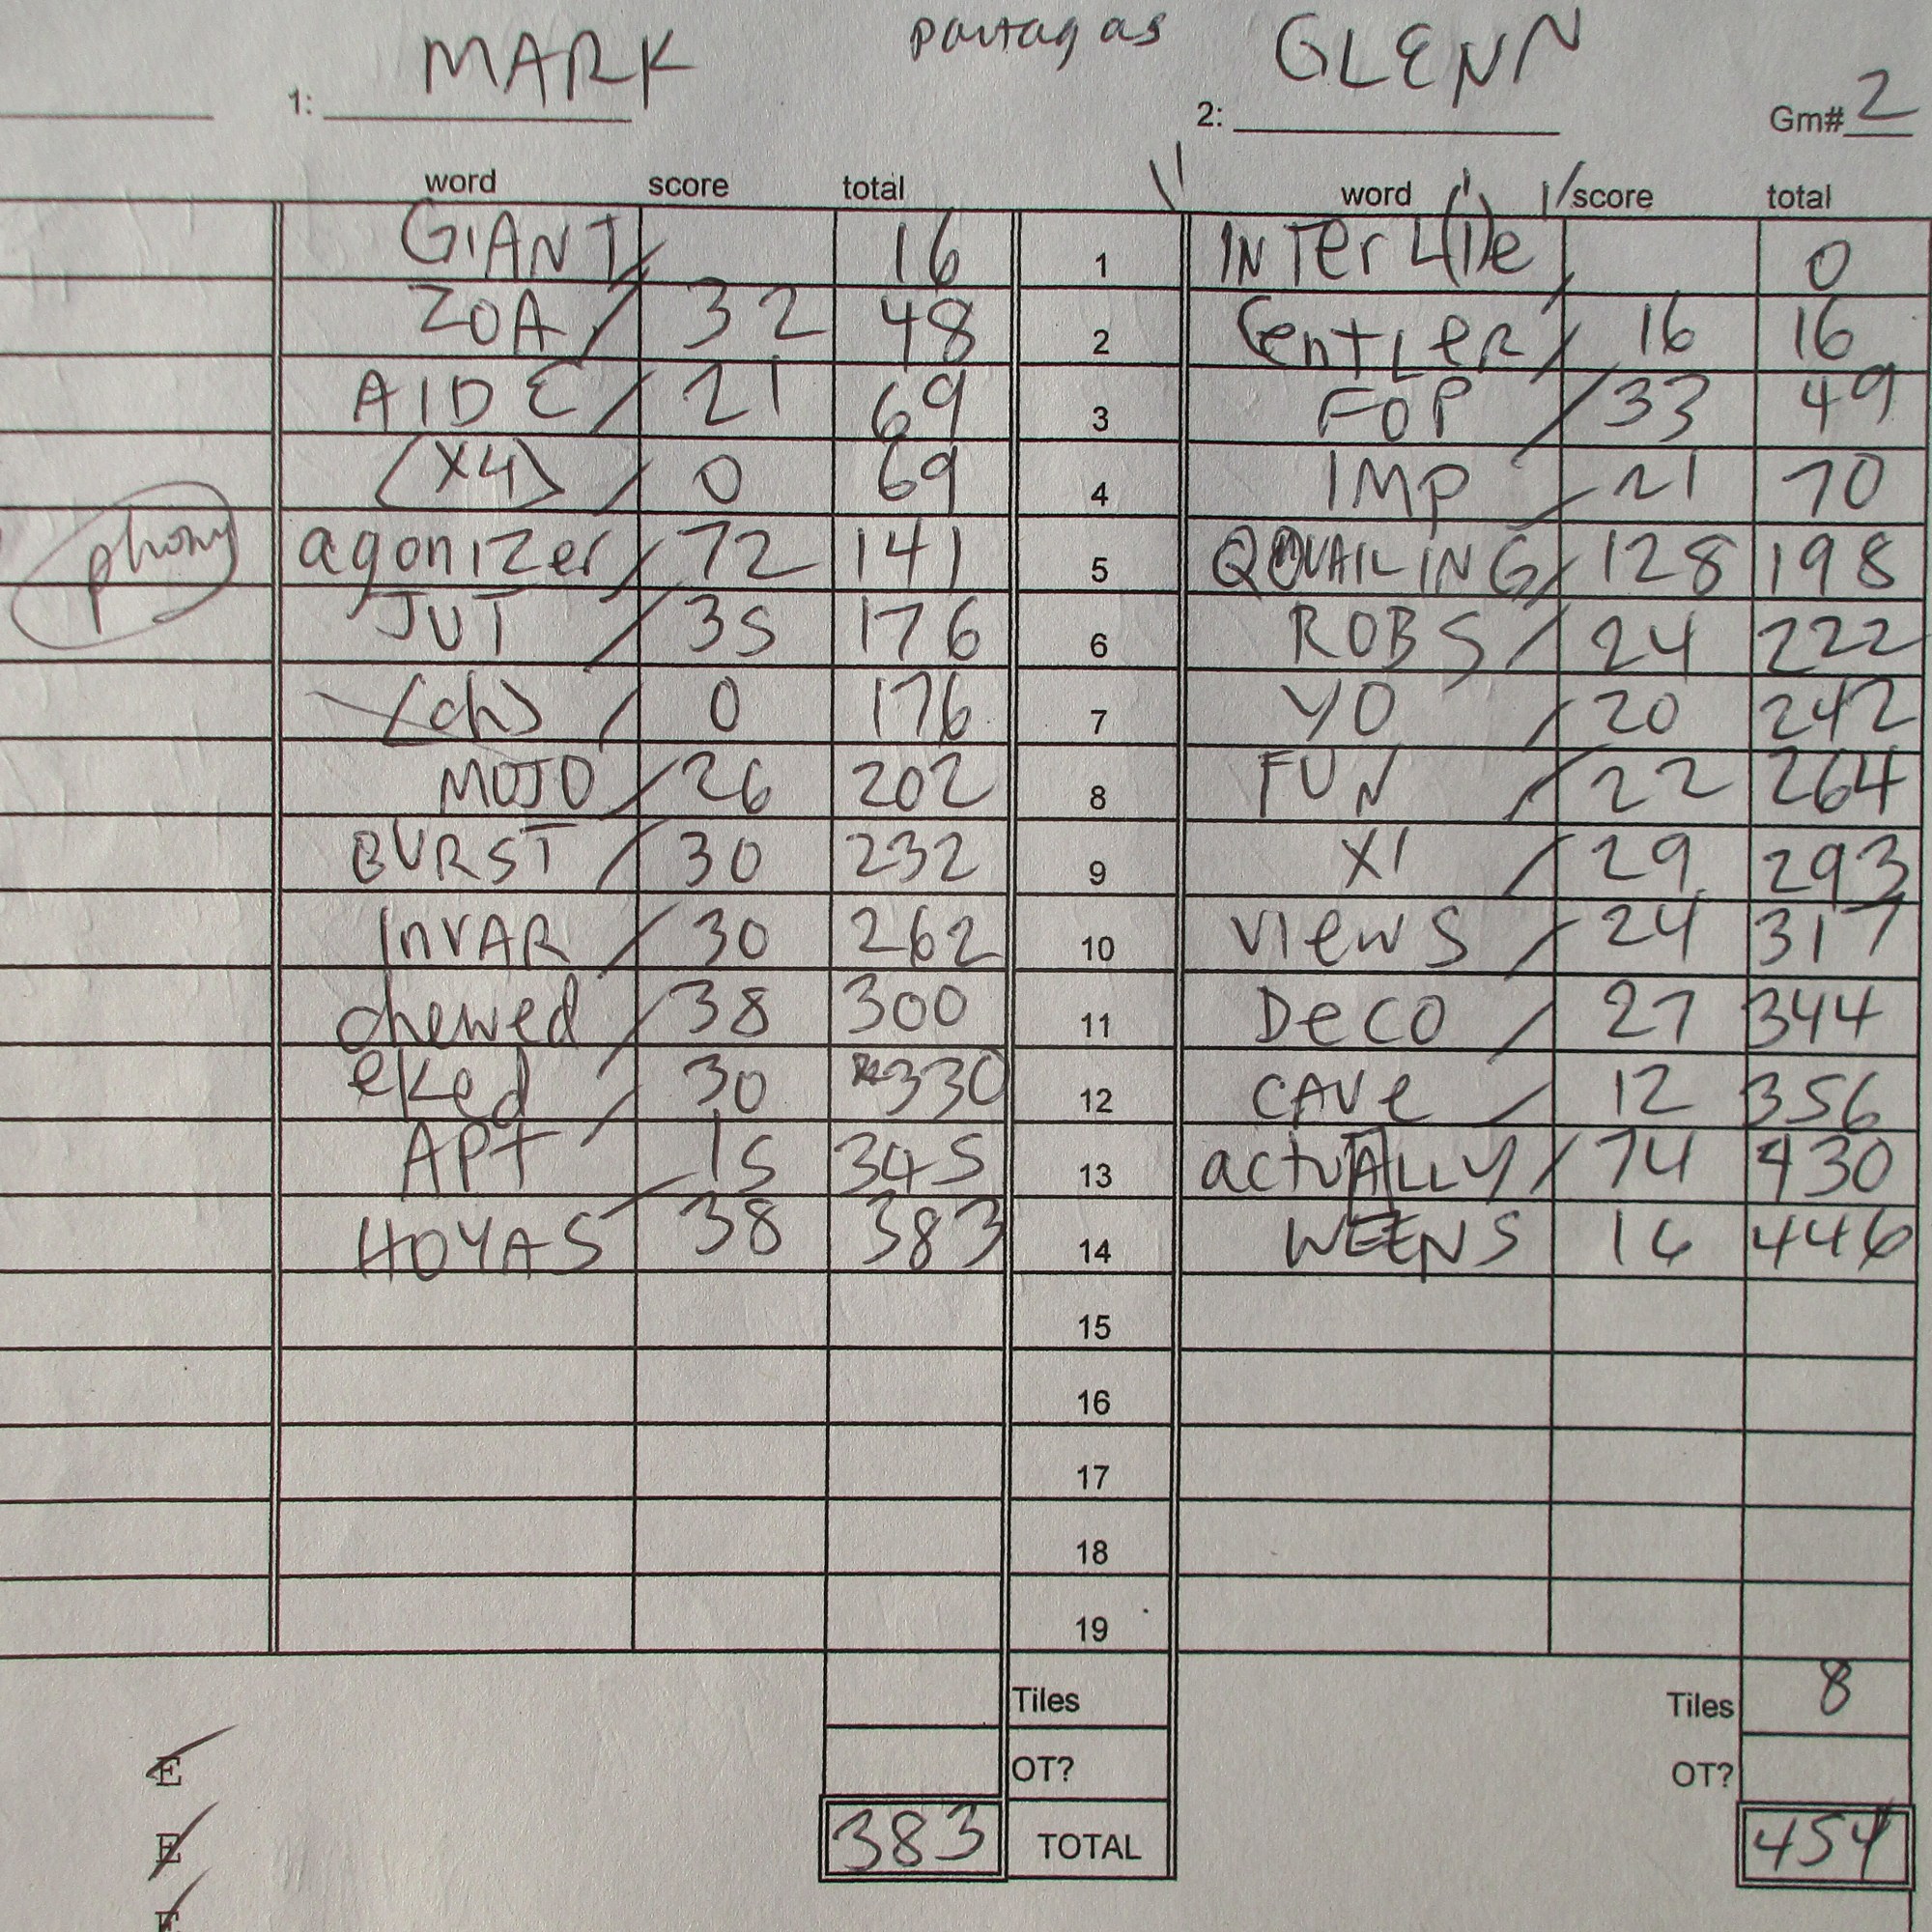 MARK partagas GLENN
1: 2: Gm# 2
word score total word score total
GIANT 16 1 INTerL(I)e 0
ZOA 32 48 2 GentLeR 16 16
AIDE 21 69 3 FOP 33 49
(X4) 0 69 4 IMP 21 70
phony agonIZer 72 141 5 QUAILING 128 198
JUT 35 176 6 ROBS 24 222
(ch) 0 176 7 YO 20 242
MOJO 26 202 8 FUN 22 264
BURST 30 232 9 XI 29 293
InVAR 30 262 10 VIewS 24 317
chewed 38 300 11 DeCO 27 344
eKed 30 330 12 CAVe 12 356
APT 15 345 13 actuALLY 74 430
HOYAS 38 383 14 WEENS 16 446
15
16
17
18
19
Tiles Tiles 8
E OT? OT?
E 383 TOTAL 454
E